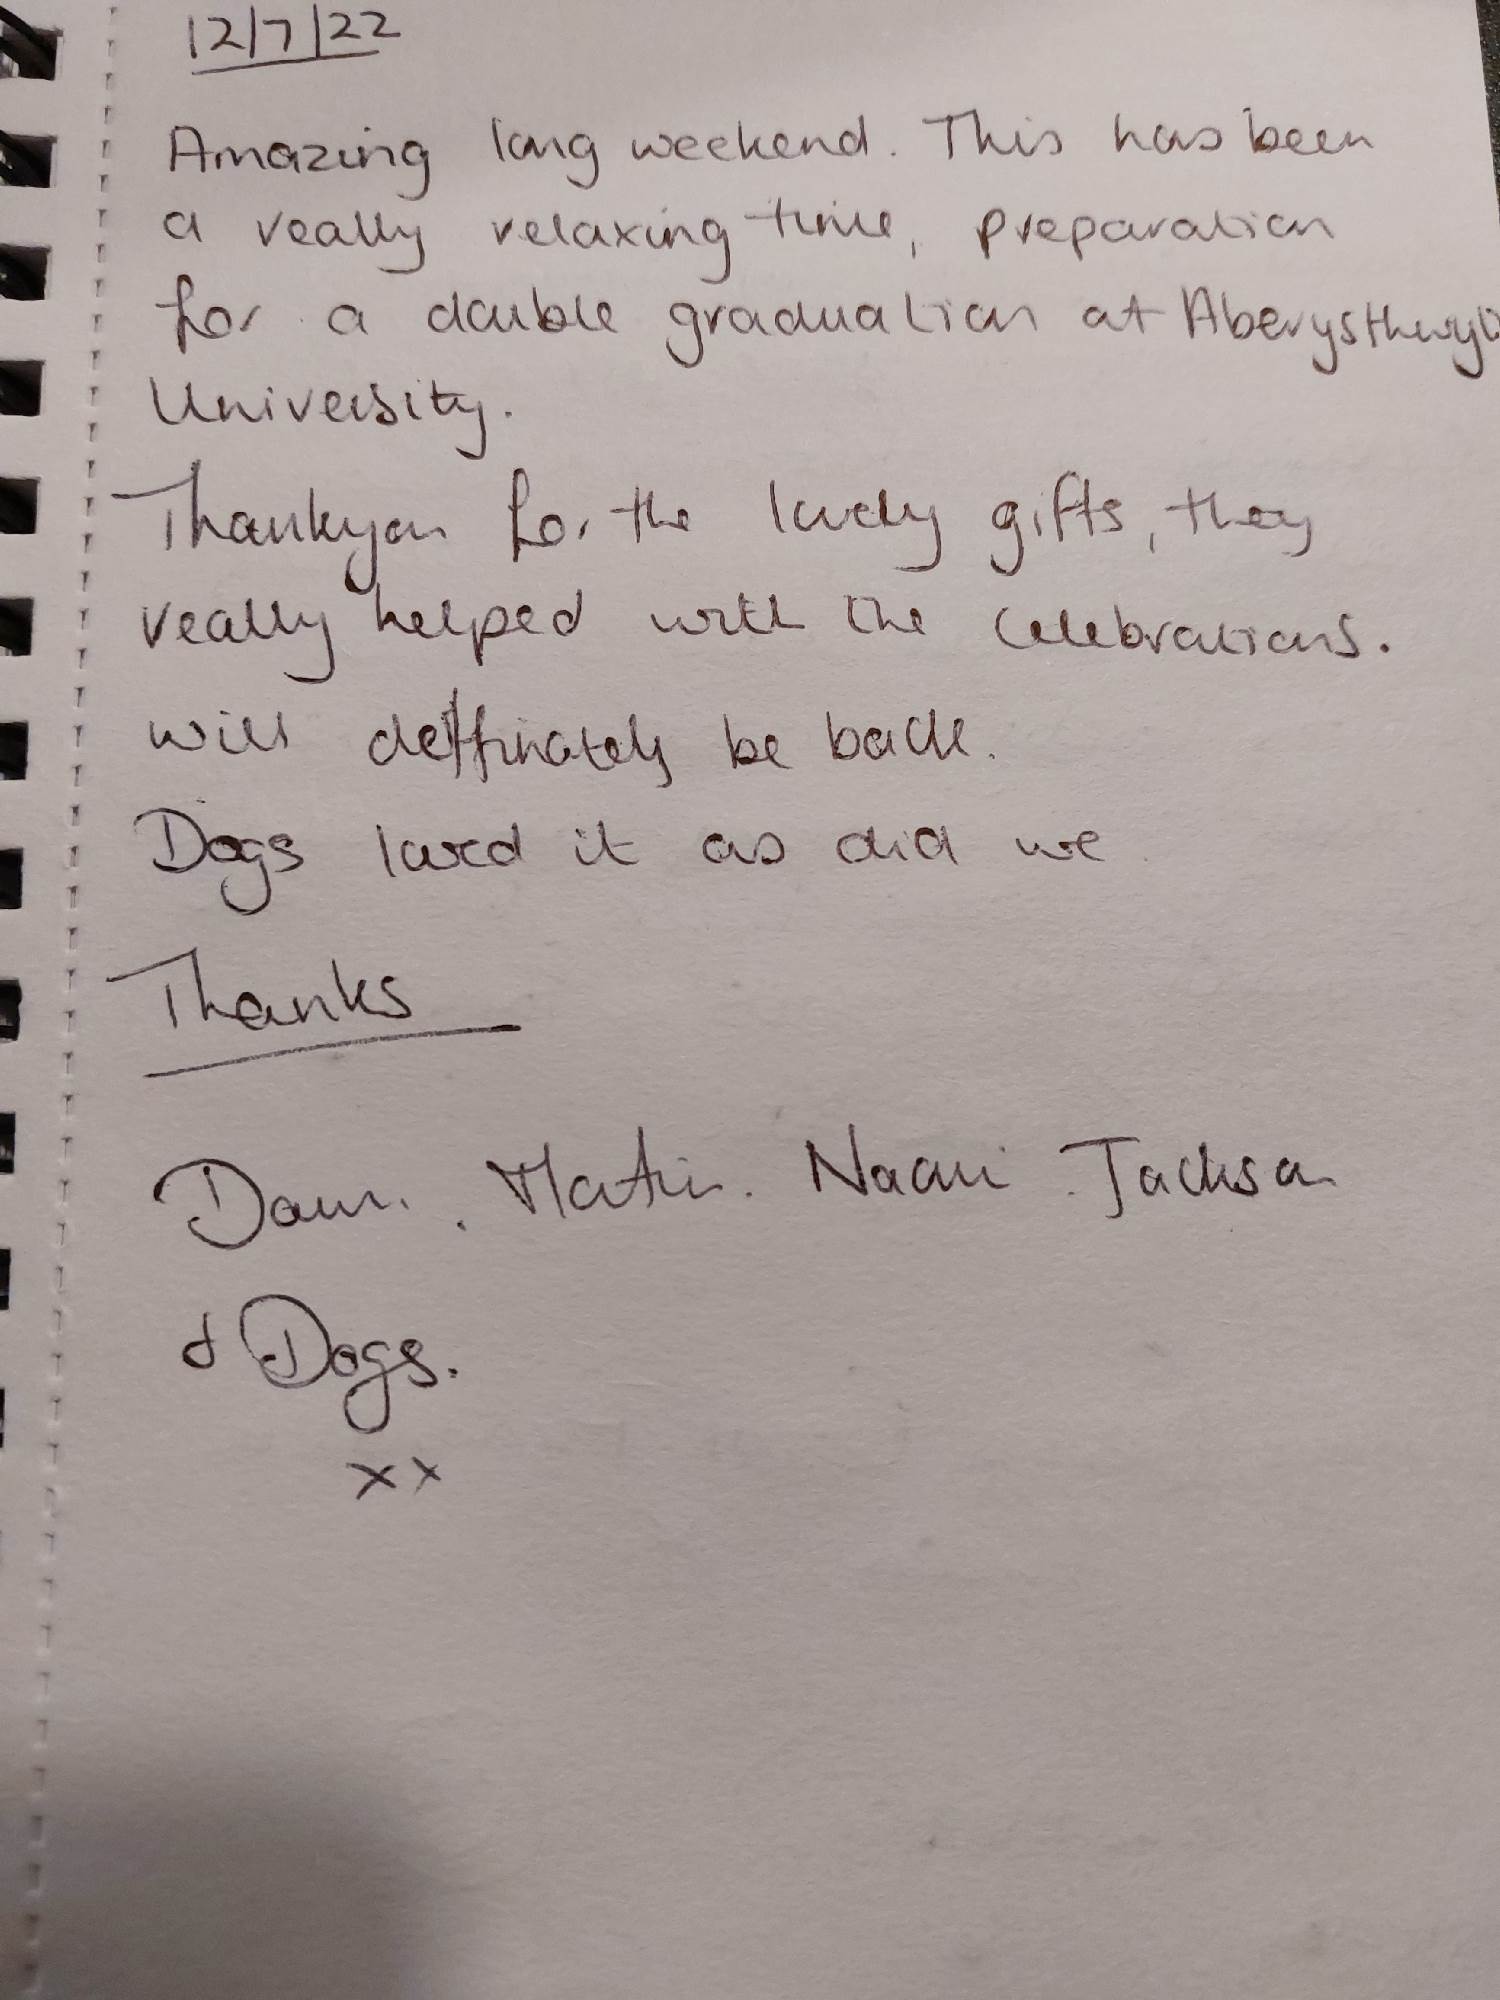 12/7/22
Amazing long weekend. This has been
a really relaxing time, preparation
for a double graduation at Aberystwyth
University.
Thankyou for the lovely gifts, they
really helped with the celebrations.
will deffinately be back.
Dogs loved it as did we
Thanks
Martin. Naomi. Jackson
& Dogs.
xx